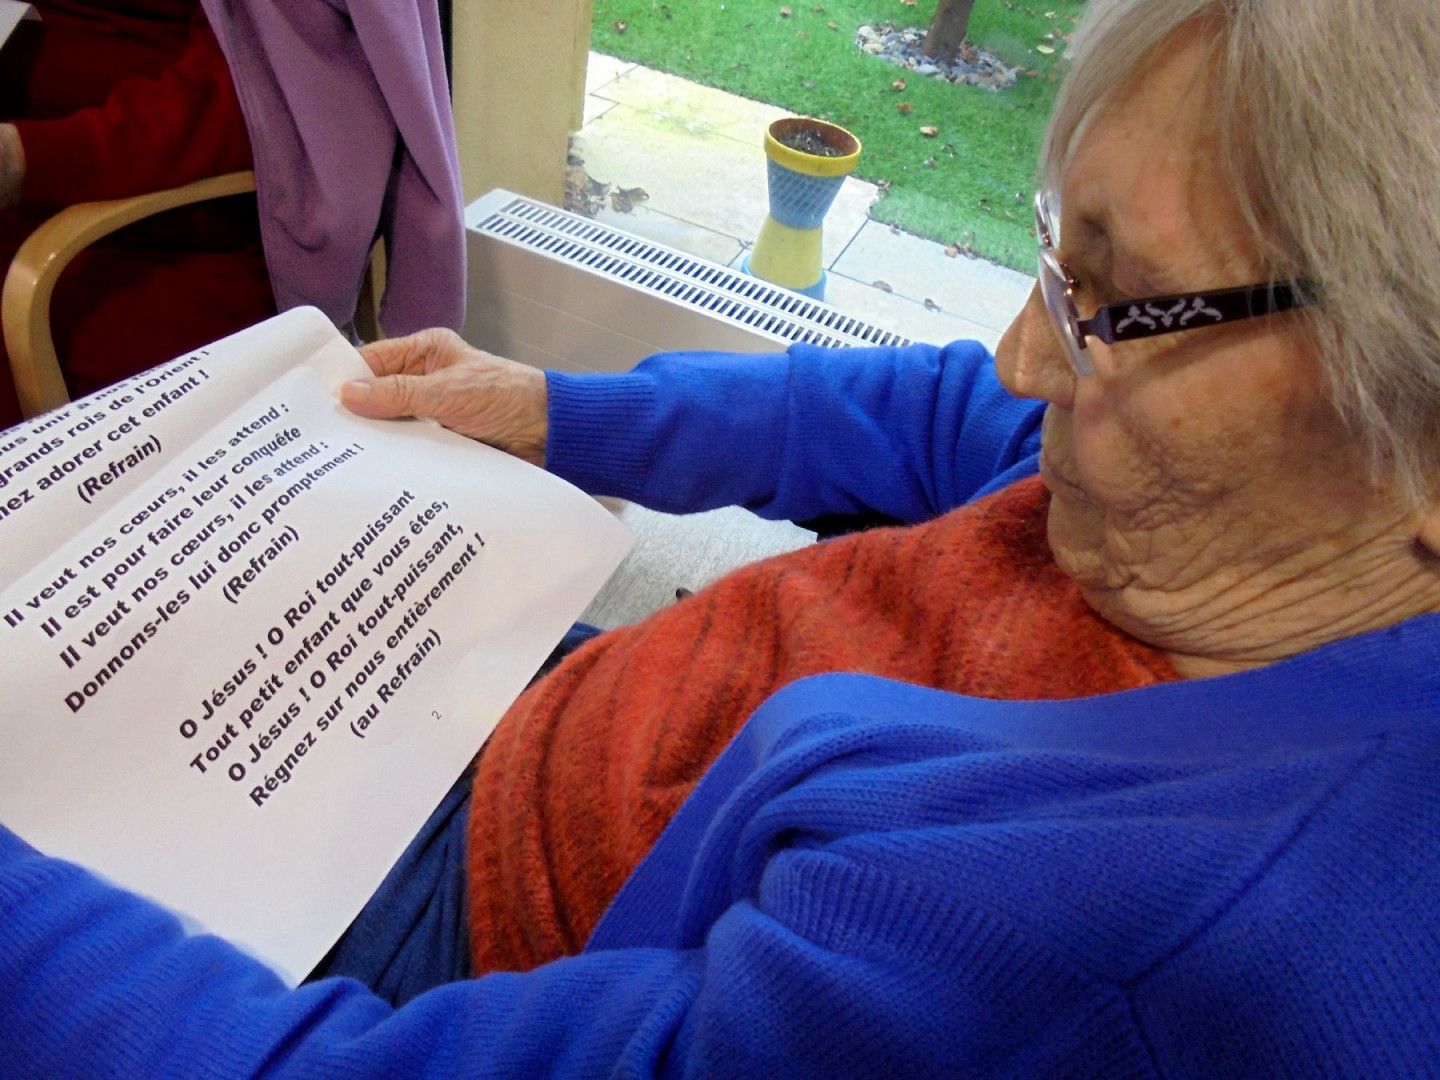 unir à nos
grands rois de l'Orient !
nez adorer cet enfant !
(Refrain)
Il veut nos cœurs, il les attend :
Il est pour faire leur conquête
Il veut nos cœurs, il les attend :
Donnons-les lui donc promptement !
(Refrain)
O Jésus ! O Roi tout-puissant
Tout petit enfant que vous êtes,
O Jésus ! O Roi tout-puissant,
Régnez sur nous entièrement !
(au Refrain)
2